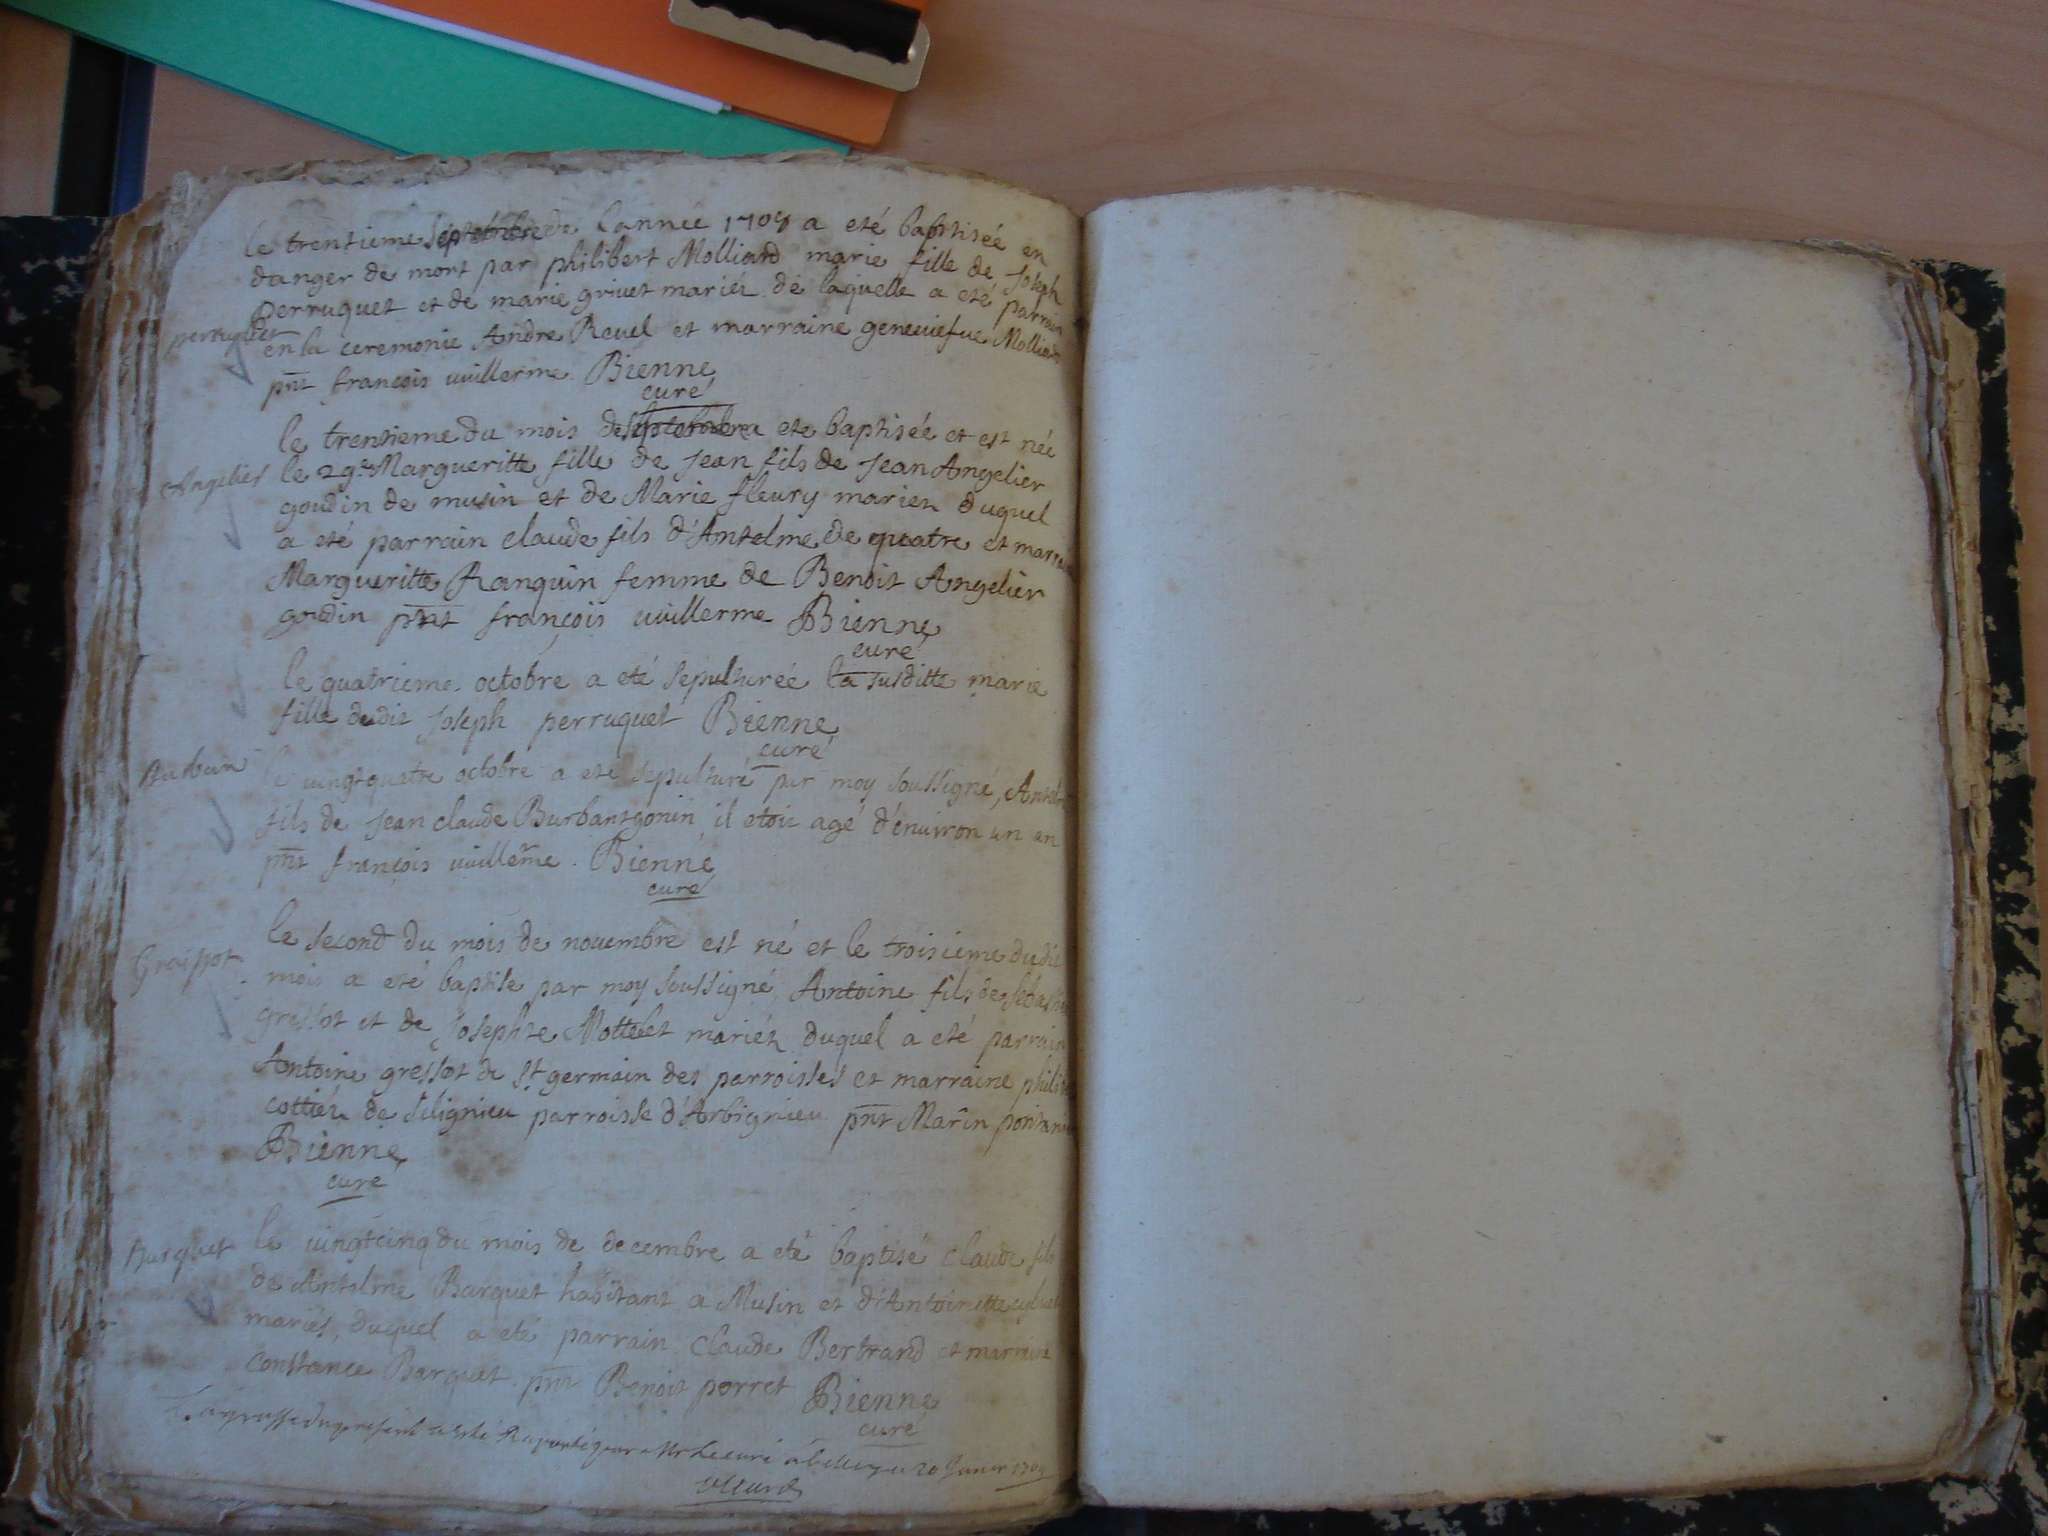 le trentieme septembre de lannée 1708 a eté baptisée en
danger de mort par philibert Molliard marie fille de Joseph
perruquet et de marie grivet mariéz de laquelle a eté parrain
perruquet
en la ceremonie Andre Revel et marraine geneviefve Molliard
pñt françois vuillerme Bienne
curé
le trentieme du mois de septembre a ete baptisée et est née
Angelier
le 29e Margueritte fille de Jean fils de Jean Angelier
goudin de musin et de Marie fleury mariez duquel
a eté parrain claude fils d'Antelme de quatre et marraine
Margueritte Ranguin femme de Benoit Angelier
goudin pñt françois vuillerme Bienne
curé
le quatrieme octobre a eté sepulturée la susditte marie
fille dudit Joseph perruquet Bienne
curé
Burban
le vingt quatre octobre a eté sepulturé par moy soussigné, Antelme
fils de Jean claude Burbantgonin il etoit agé d'environ un an
pñt françois vuillerme. Bienne
curé
Graissot
le second du mois de novembre est né et le troisieme dudit
mois a eté baptise par moy soussigné, Antoine fils de sebastien
gressot et de Josephte Mottelet mariéz duquel a eté parrain
Antoine gressot de st germain des parroisses et marraine
cottier de selignieu parroisse d'Arbignieu pñt Marin
Bienne
curé
Barquet
le vingtcinq du mois de decembre a eté baptisé claude fils
de Antelme Barquet habitant a Musin et d'Antoinette
mariés, duquel a eté parrain claude Bertrand et marraine
constance Barquet pñt Benoit perret Bienne
curé
La grosse du present a esté Raportée par Mr Le curé a belley ce 20 Janvier 1709